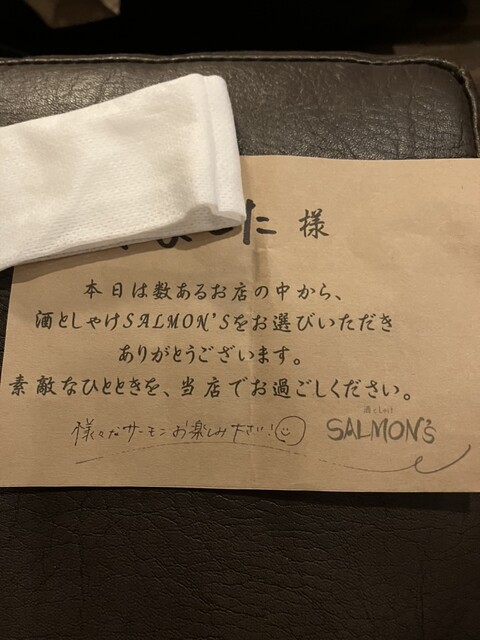 様
本日は数あるお店の中から、
酒としゃけSALMON'Sをお選びいただき
ありがとうございます。
素敵なひとときを、当店でお過ごしください。
様々なサーモンお楽しみ下さい!
酒としゃけ
SALMON's